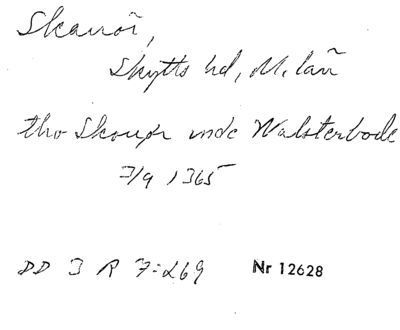 Skanör,
Skytts hd, M. län
tho Skonør vnde Walsterbode
7/9 1365
DD 3 R 7:269 Nr 12628